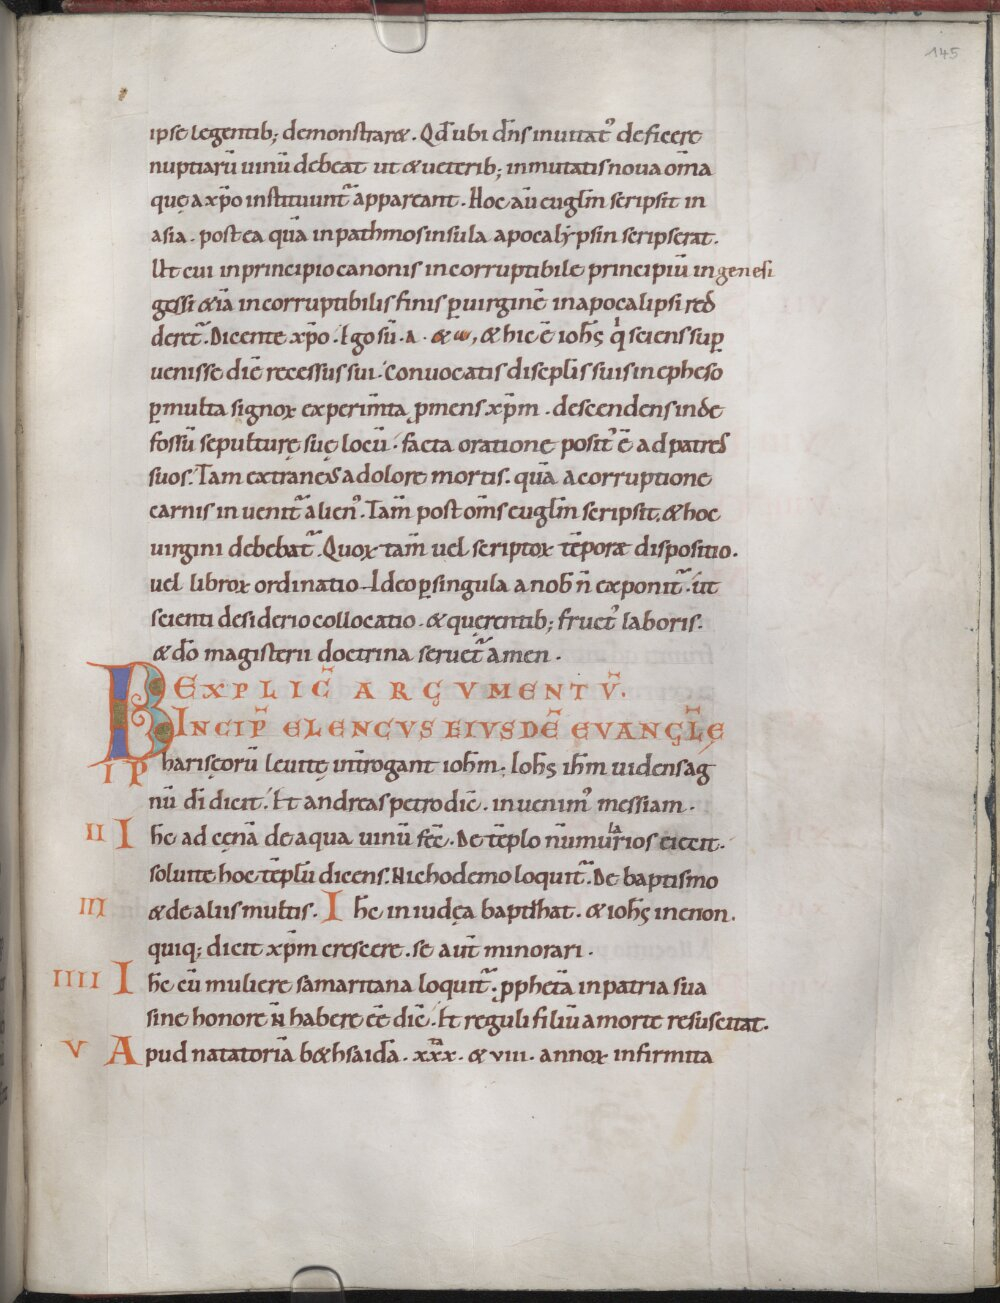 145
ipse legentib; demonstraret. Qđ ubi dñs inuitat᷒ deficere
nuptiarū uinū debeat ut & ueterib; inmutatis noua om̄a
quę a xp̄o instituunt᷑ appareant. Hoc aū euglm̄ scripsit in
asia. postea quā in pathmos insula apocalẏpsin scripserat.
Ut cui in principio canonis incorruptibile principiū in genesi
gessi &iā incorruptibilis finis ꝑ uirginē in apocalipsi red
deret᷑. Dicente xp̄o. Ego sū .A. & ω, & hic ē ioh̄s qͥ sciens suꝑ
uenisse diē recessus sui. Conuocatis disciplis suis in epheso
ꝑ multa signoꝝ experim̄ta ꝓmens xp̄m. descendens inde
fossū sepulturę suę locū. facta oratione posit᷒ ē ad patres
suos. Tam extraneus a dolore mortis. quā a corruptione
carnis inuenit᷑ alien᷒. Tam̄ post om̄s euglm̄ scripsit. & hoc
uirgini debebat᷑. Quoꝝ tam̄ uel scriptoꝝ tēporæ dispositio.
uel libroꝝ ordinatio. Ideo ꝑ singula a nob n̄ exponit᷑. ut
scienti desiderio collocatio. & quęrentib; fruct᷒ laboris.
& do͞ magisterii doctrina seruet᷑ amen.
EXPLIC̄ ARGVMENTV̄.
INCIP̄ ELENCVS EIVSDĒ EVANGL̄E
I P hariseorū leuitę int̄rogant ioh̄m. Ioh̄s ih̄m uidens ag
nū di͞ dicit. Et andreas petro dic̄. inuenim᷒ messiam.
II I hc̄ ad cęnā de aqua uinū fec̄. De tēplo nūmularios eiecit.
soluite hoc tēplū dicens. Nichodemo loquit᷑. De baptismo
III & de aliis multis. I hc̄ in iudęa baptizat. & ioh̄s in enon.
quiq; dicit xp̄m crescere. se aut̄ minorari.
IIII I hc̄ cū muliere samaritana loquit᷑. ꝓphetā in patria sua
sine honore n̄ habere ēē dic̄. Et reguli filiū a morte resuscitat.
V A pud natatoriā b&hsaida. xxx. & viii. annoꝝ infirmita